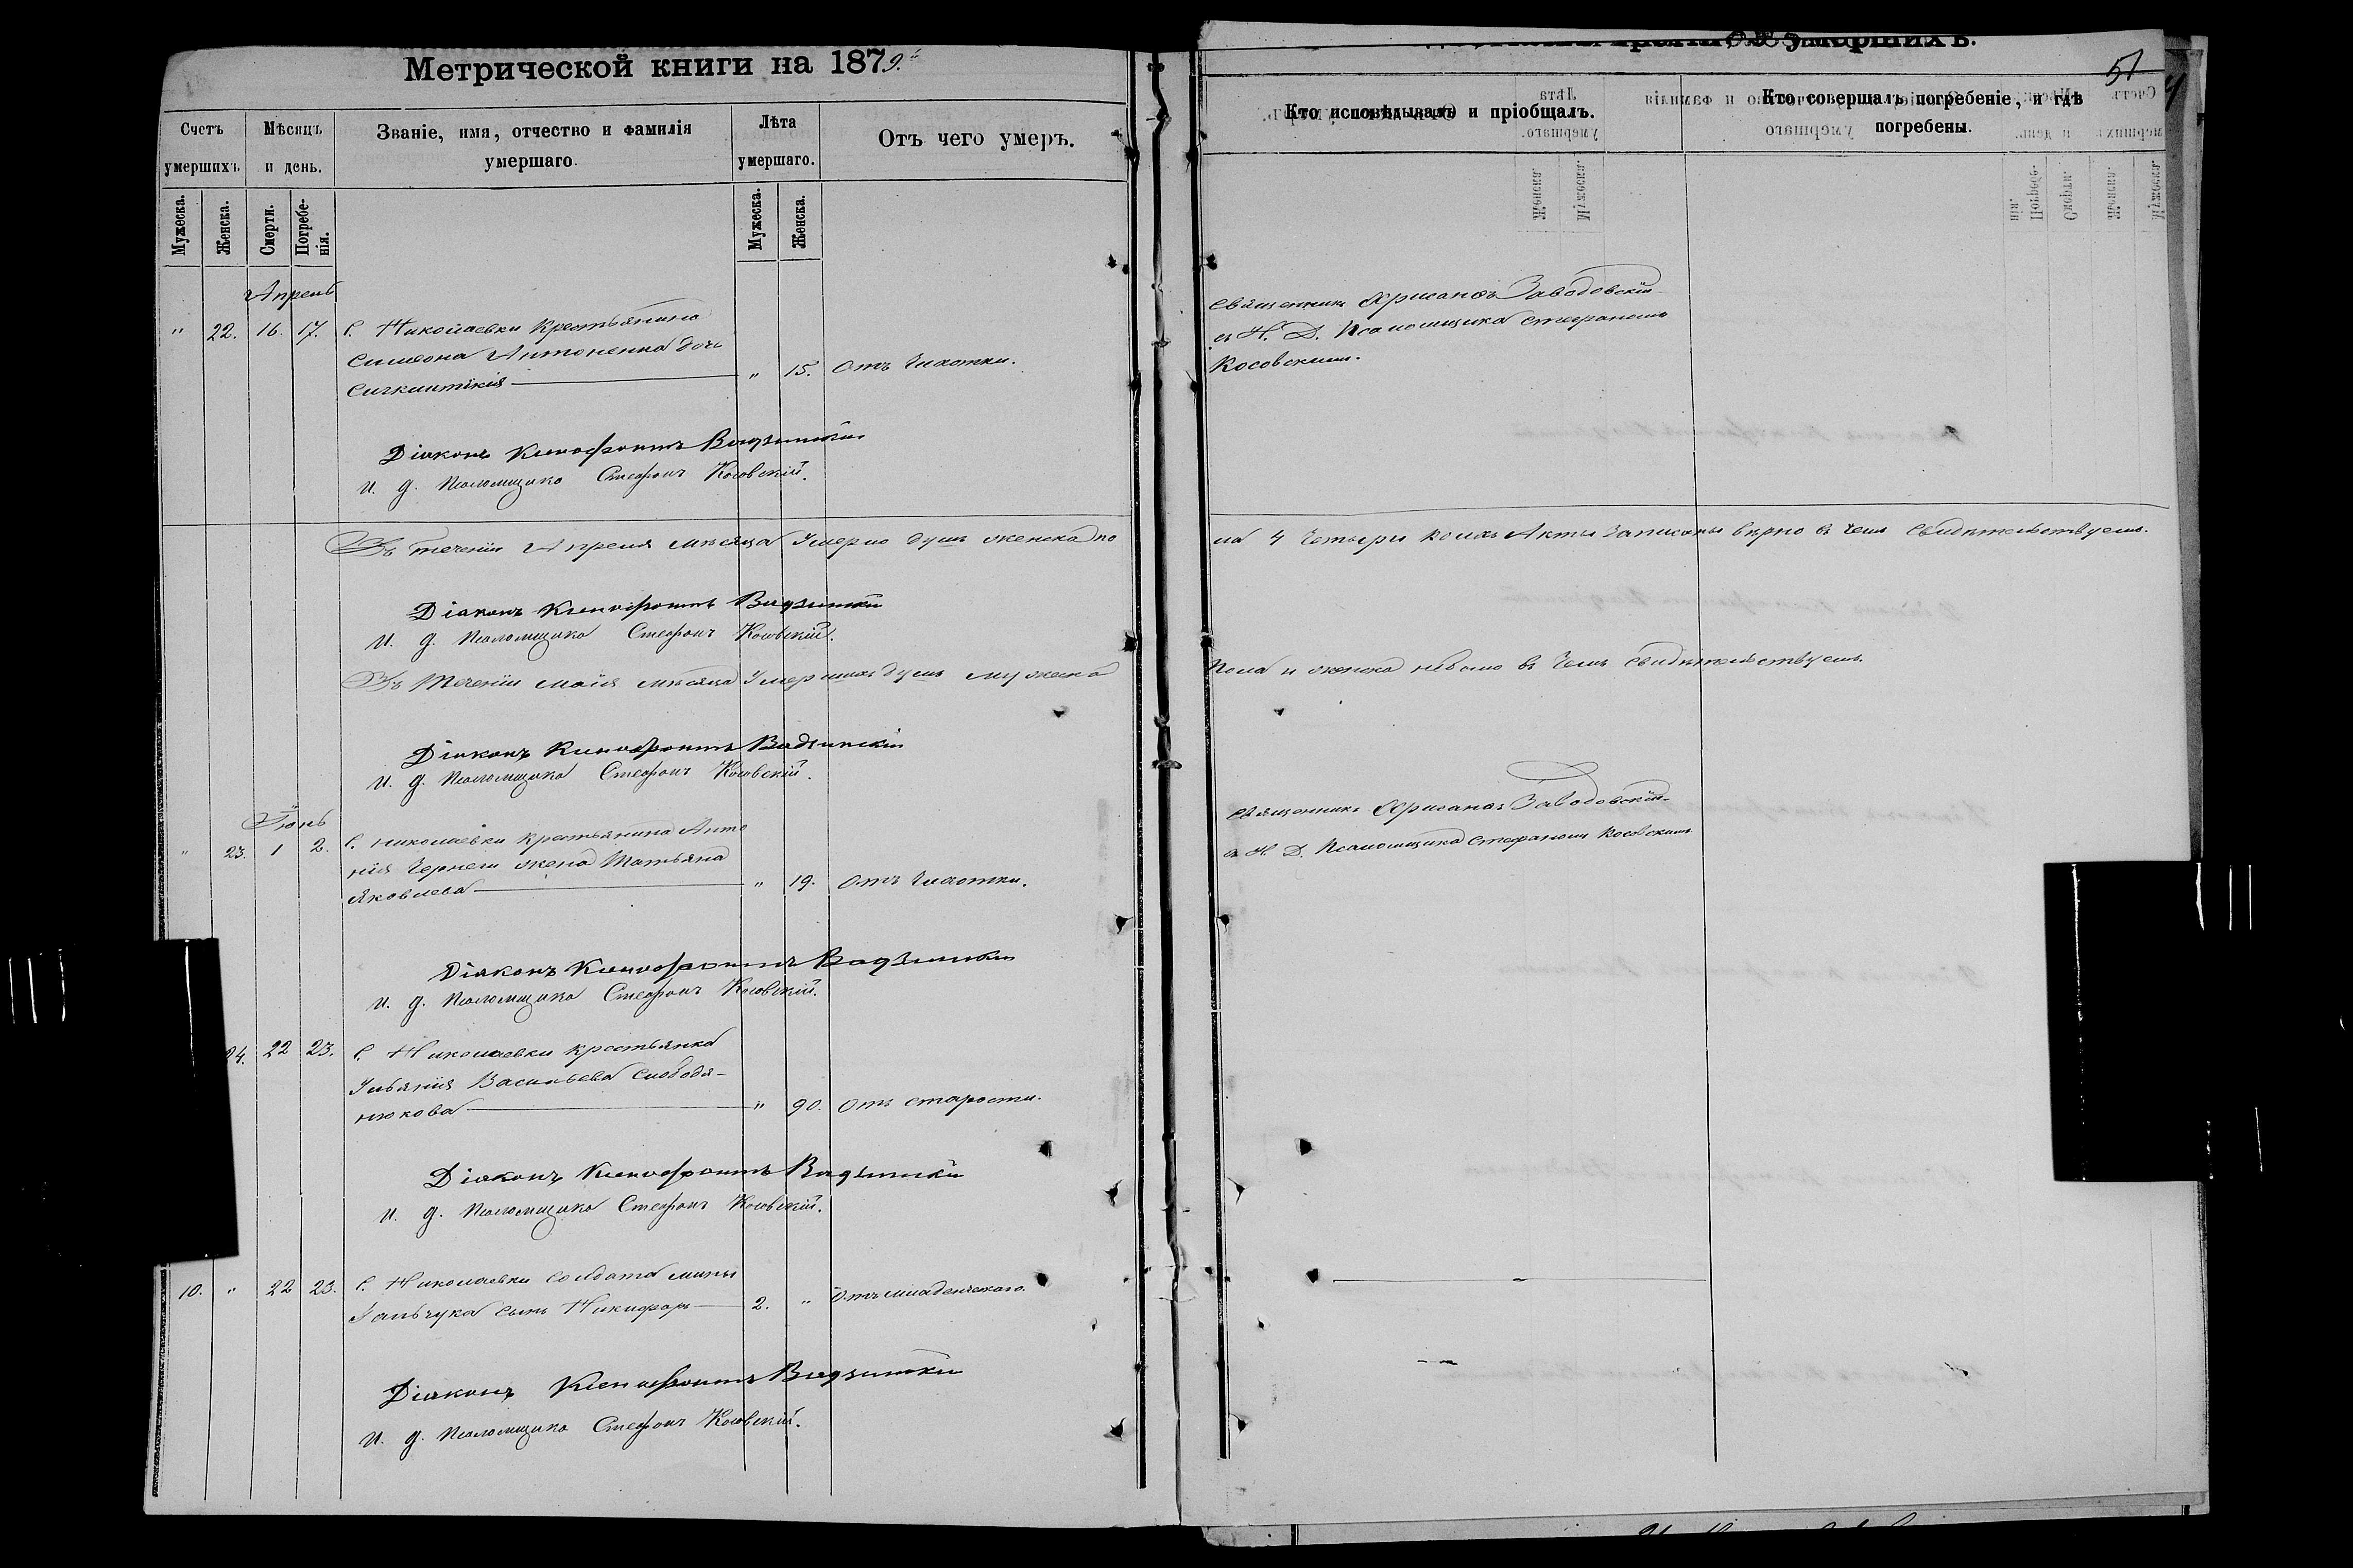 Метрической книги на 1879.
Счетъ умершихъ. Мѣсяцъ и день. Званіе, имя, отчество и фамилія умершаго. Лѣта умершаго. Отъ чего умеръ.
Мужеска. Женска. Смерти. Погребе-нія. Мужеска. Женска.
Апрель
" 22. 16. 17. С. Николаевки крестьянина
Симеона Антоненка дочь
" 15. Отъ Чахотки.
Діаконъ Ксенофонтъ
И. д. Псаломщика Стефанъ Косовскій.
Въ теченіи Апреля мѣсяца Умерло душъ женска по
Діаконъ Ксенофонтъ
И. д. Псаломщика Стефанъ Косовскій.
Въ теченіи маія мѣсяца Умершихъ душъ мужеска
Діаконъ Ксенофонтъ
И. д. Псаломщика Стефанъ Косовскій.
Іюнь
" 23. 1 2. С. Николаевки крестьянина Анто
нія Чернеги жена Татьяна
Яковлева " 19. Отъ Чахотки.
Діаконъ Ксенофонтъ
И. д. Псаломщика Стефанъ Косовскій.
24. 22 23. С. Николаевки крестьянка
Ульянія Васильева Слободя-
нюкова " 90. Отъ старости.
Діаконъ Ксенофонтъ
И. д. Псаломщика Стефанъ Косовскій.
10. " 22 23. С. Николаевки солдата
сынъ Никифоръ 2. " Отъ младенческаго.
Діаконъ Ксенофонтъ
И. д. Псаломщика Стефанъ Косовскій.
умершихъ.
51
Кто исповѣдывалъ и пріобщалъ. Кто совершалъ погребеніе, и гдѣ погребены.
Священникъ Хрисанфъ Заводовскій
съ И. Д. Псаломщика Стефаномъ
Косовскимъ.
ла 4 Четыри коихъ Акты записаны вѣрно въ чемъ свидѣтельствуемъ.
пола и женска небыло въ чемъ свидѣтельствуемъ.
Священникъ Хрисанфъ Заводовскій
съ И. Д. Псаломщика Стефаномъ Косовскимъ